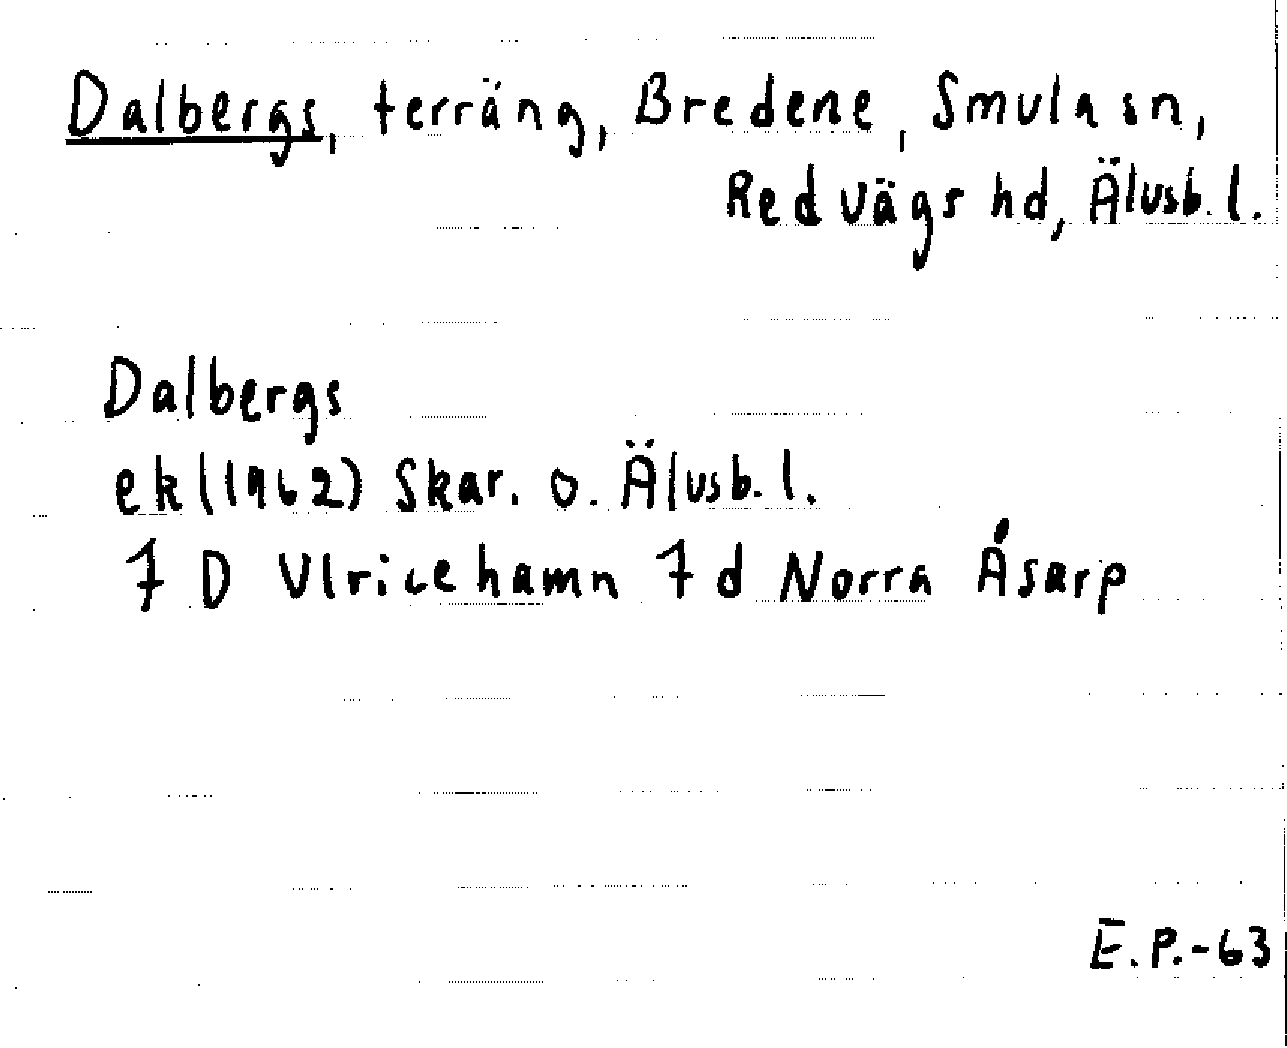 Dalbergs, terräng, Bredene, Smula sn,
Redvägs hd, Älvsb. l.
Dalbergs
ek (1962) Skar. o. Älvsb. l.
7 D Ulricehamn 7 d Norra Åsarp
E.P.-63